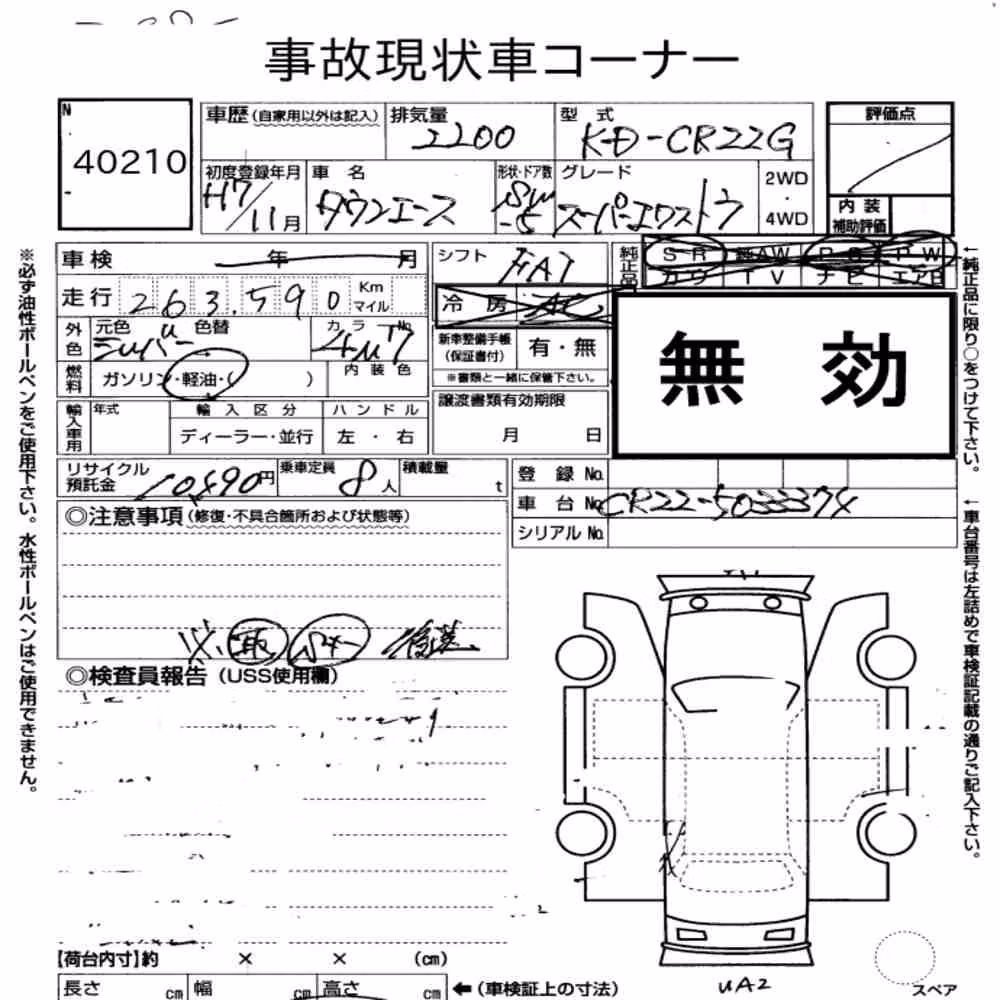 事故現状車コーナー
N
40210
車歴(自家用以外は記入)
排気量
2200
型式
KD-CR22G
評価点
初度登録年月
H7/11月
車名
タウンエース
形状・ドア数
SW-5
グレード
スーパーエクストラ
2WD
・
4WD
内装
補助評価
車検 年 月
シフト
FAT
純正品
SR
AW
PS
PW
カワ
TV
ナビ
エアB
走行 263,590 Km マイル
冷房
AC
外色
元色
シルバー
色替
カラーNo
4M7
新車整備手帳
(保証書付)
有・無
※書類と一緒に保管下さい。
無効
燃料
ガソリン・軽油・( )
内装色
譲渡書類有効期限
月 日
輸入車用
年式
輸入区分
ディーラー・並行
ハンドル
左・右
リサイクル
預託金
10,490円
乗車定員
8人
積載量
t
登録No.
車台No.
CR22-5033374
シリアルNo.
◎注意事項(修復・不具合箇所および状態等)
※ 取 後送
◎検査員報告(USS使用欄)
【荷台内寸】約 × × (cm)
長さ cm
幅 cm
高さ cm
←(車検証上の寸法)
UA2
スペア
※必ず油性ボールペンをご使用下さい。水性ボールペンはご使用できません。
←純正品に限り○をつけて下さい。
←車台番号は左詰めで車検証記載の通りご記入下さい。